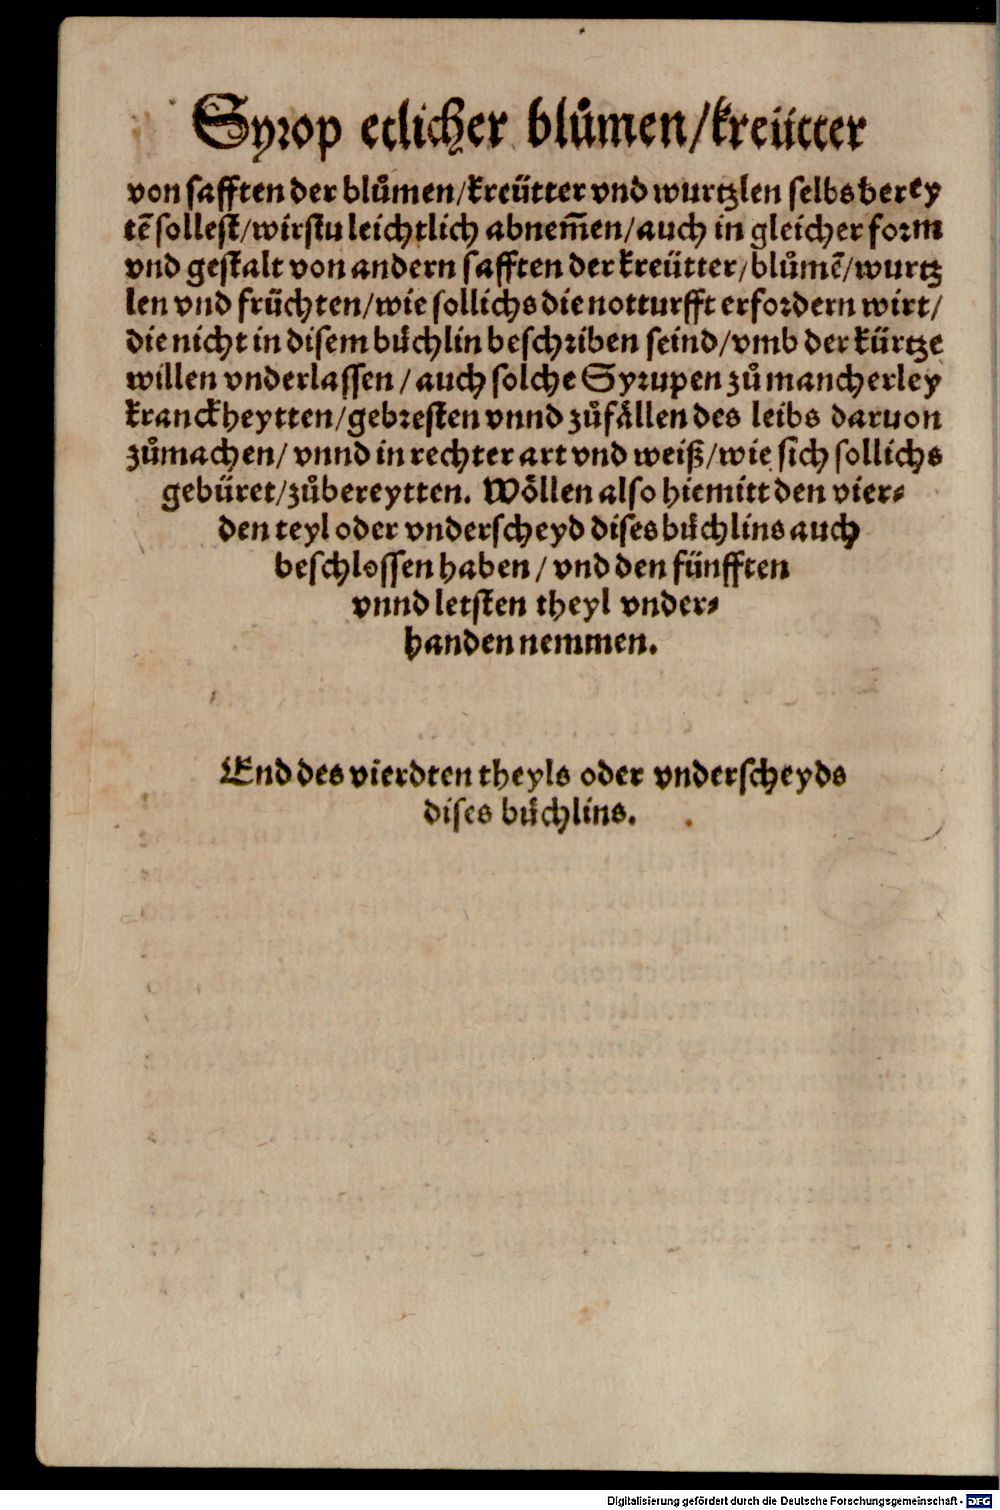 Syrop etlicher blůmen/kreütter
von safften der blůmen/kreütter vnd wurtzlen selbs berey
tē sollest/wirstu leichtlich abnem̄en/auch in gleicher form
vnd gestalt von andern safften der kreütter/blůmē/wurtz
len vnd früchten/wie sollichs die notturfft erfordern wirt/
die nicht in disem bůchlin beschriben seind/vmb der kürtze
willen vnderlassen/auch solche Syrupen zů mancherley
kranckheytten/gebresten vnnd zůfållen des leibs daruon
zůmachen/vnnd in rechter art vnd weiß/wie sich sollichs
gebüret/zůbereytten. Wöllen also hiemitt den vier⸗
den teyl oder vnderscheyd dises bůchlins auch
beschlossen haben/vnd den fünfften
vnnd letsten theyl vnder⸗
handen nemmen.
End des vierdten theyls oder vnderscheyds
dises bůchlins.
Digitalisierung gefördert durch die Deutsche Forschungsgemeinschaft - DFG